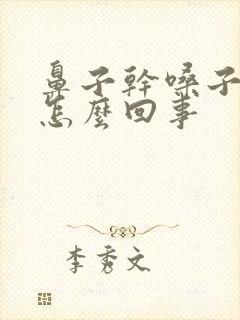 鼻子幹嗓子
怎麼回事
李秀文